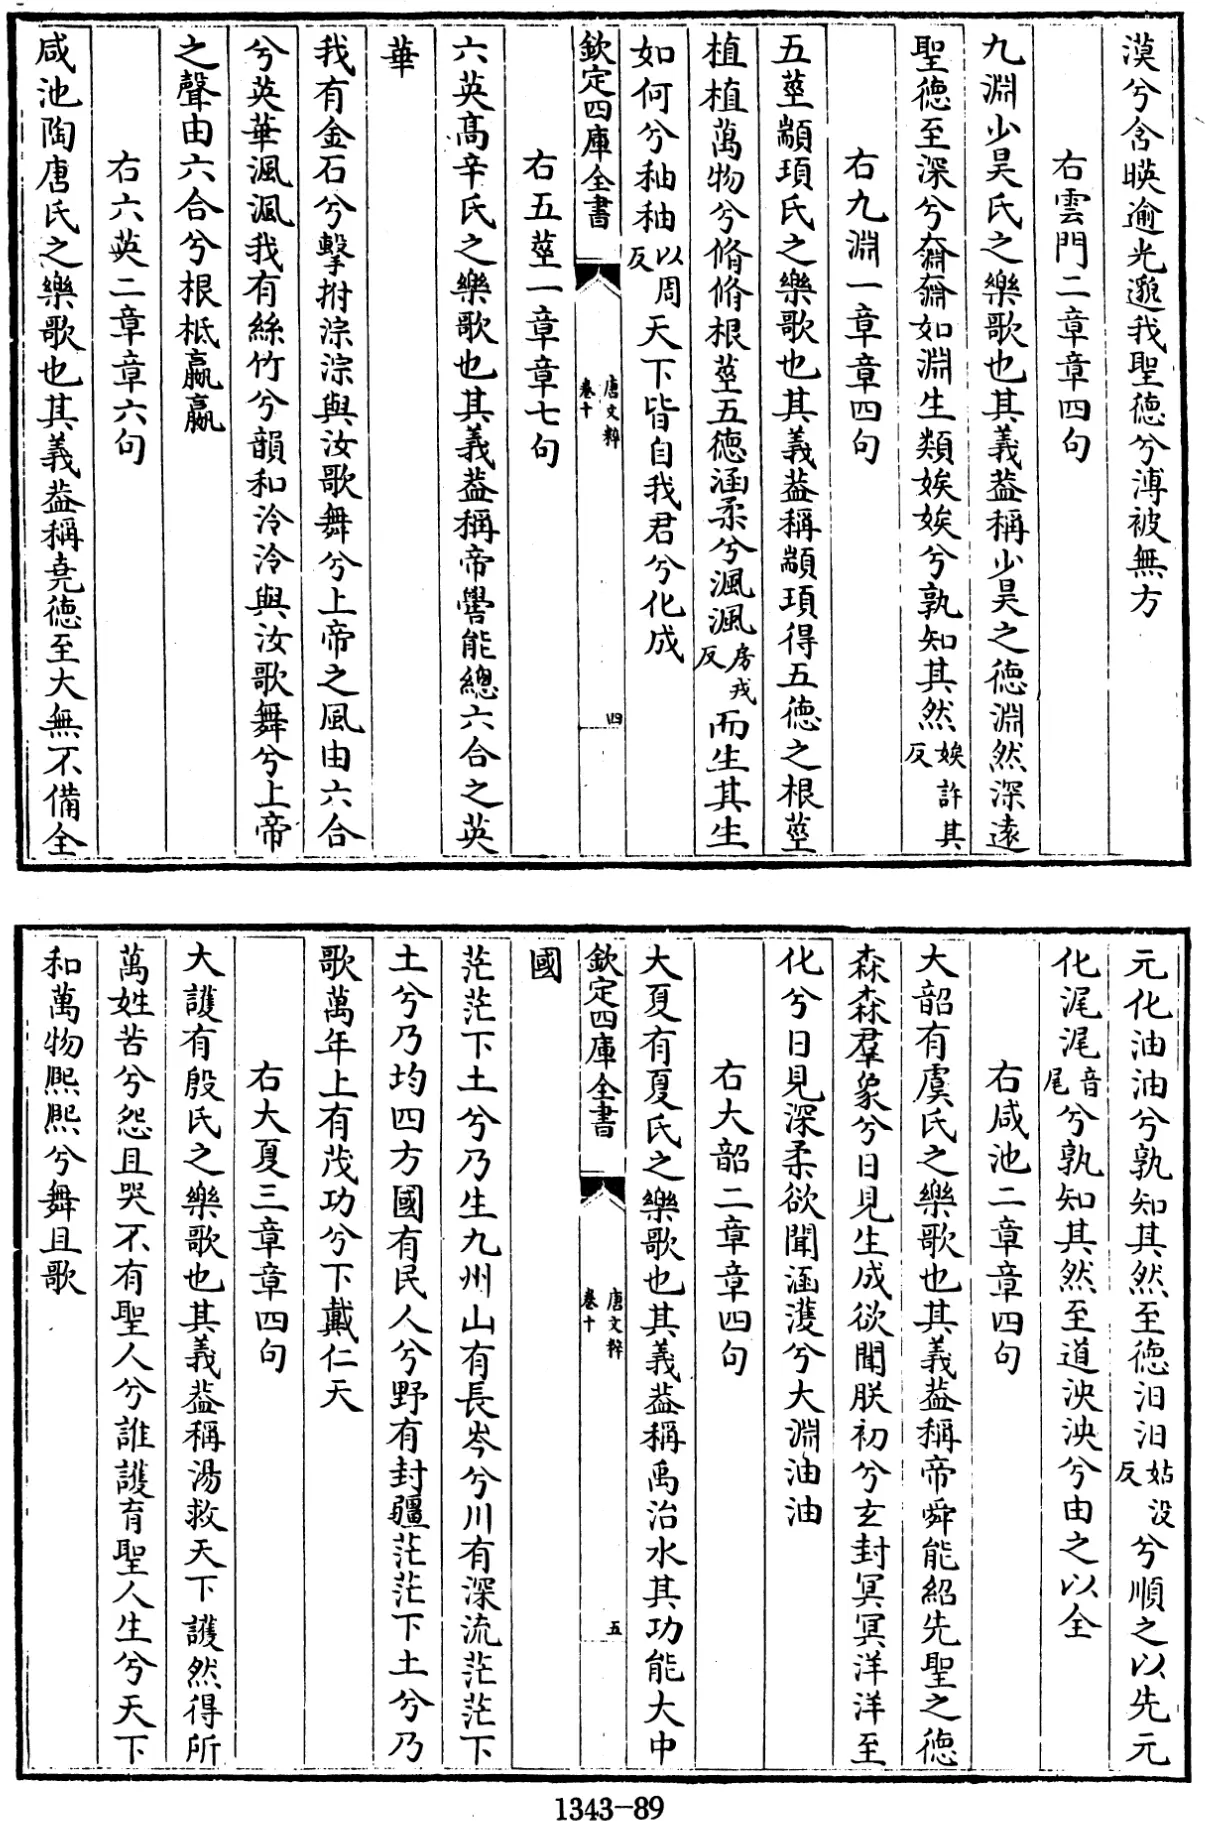 漠兮含映逾光邈我聖德兮溥被無方
右雲門二章章四句
九淵少昊氏之樂歌也其義葢稱少昊之德淵然深遠
聖德至深兮奫奫如淵生類娭娭兮孰知其然娭許其反
右九淵一章章四句
五莖顓頊氏之樂歌也其義葢稱顓頊得五德之根莖
植植萬物兮脩脩根莖五德涵柔兮渢渢房戎反而生其生
如何兮秞秞以周反天下皆自我君兮化成
欽定四庫全書
唐文粹
卷十
四
右五莖一章章七句
六英髙辛氏之樂歌也其義葢稱帝嚳能總六合之英
華
我有金石兮擊拊淙淙與汝歌舞兮上帝之風由六合
兮英華渢渢我有絲竹兮韻和泠泠與汝歌舞兮上帝
之聲由六合兮根柢羸羸
右六英二章章六句
咸池陶唐氏之樂歌也其義葢稱堯德至大無不備全
元化油油兮孰知其然至德汨汨姑沒反兮順之以先元
化浘浘音尾兮孰知其然至道泱泱兮由之以全
右咸池二章章四句
大韶有虞氏之樂歌也其義葢稱帝舜能紹先聖之德
森森羣象兮日見生成欲聞朕初兮玄封冥冥洋洋至
化兮日見深柔欲聞涵濩兮大淵油油
右大韶二章章四句
大夏有夏氏之樂歌也其義葢稱禹治水其功能大中
欽定四庫全書
唐文粹
卷十
五
國
茫茫下土兮乃生九州山有長岑兮川有深流茫茫下
土兮乃均四方國有民人兮野有封疆茫茫下土兮乃
歌萬年上有茂功兮下戴仁天
右大夏三章章四句
大護有殷氏之樂歌也其義葢稱湯救天下護然得所
萬姓苦兮怨且哭不有聖人兮誰護育聖人生兮天下
和萬物熙熙兮舞且歌
1343-89